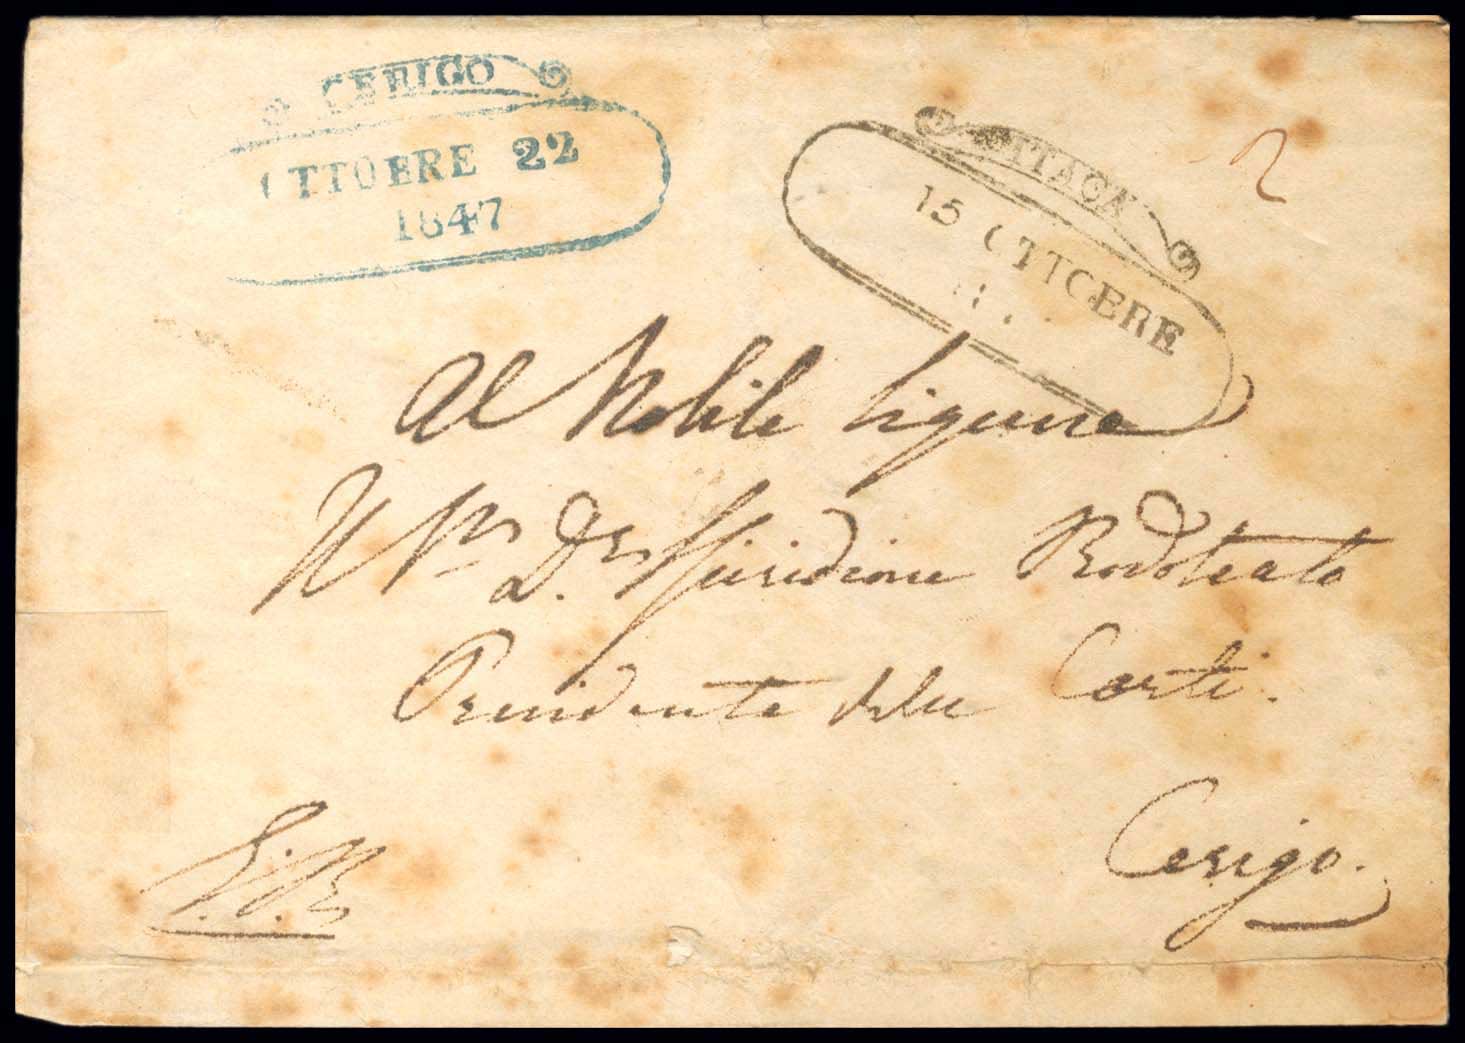 CERIGO
OTTOBRE 22
1847
ITACA
15 OTTOBRE
2
Al Nobile Signore
Dr. Spiridione Rodoteato
Presidente delle Corti.
Cerigo.